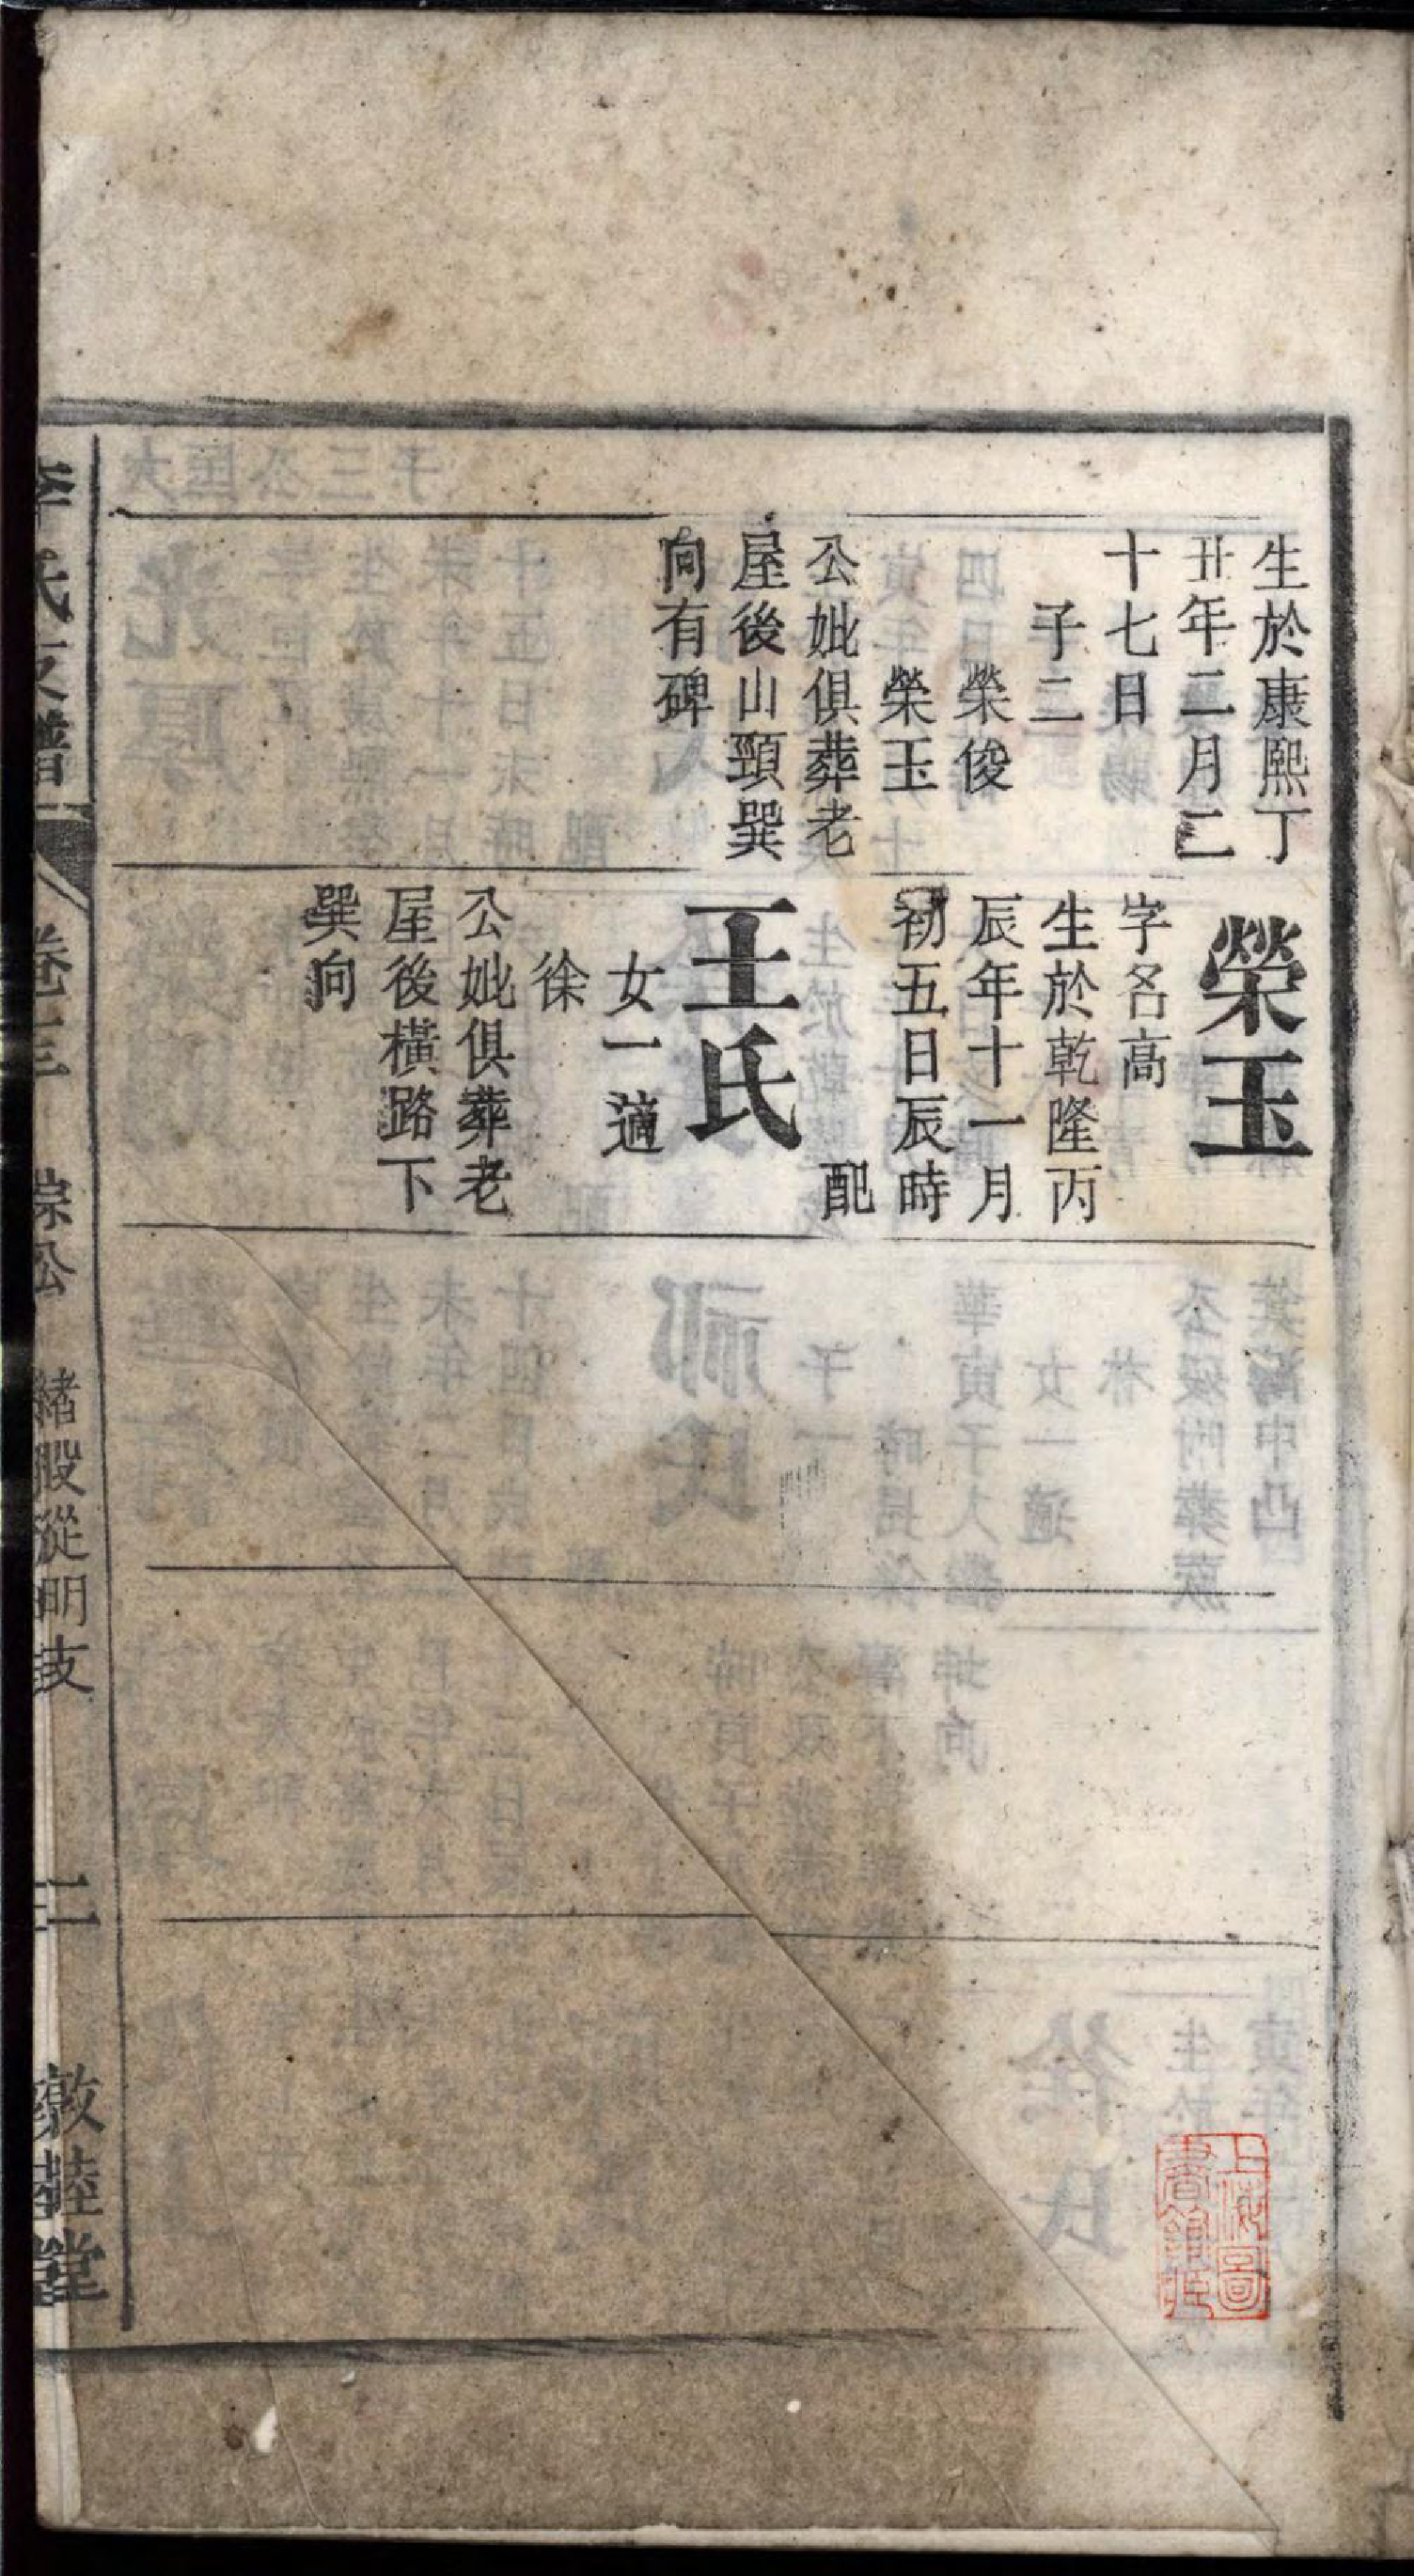 生於康熙丁
丑年二月二
十七日
子二
榮俊
榮玉
公妣俱葬老
屋後山頸巽
向有碑
榮玉
字名高
生於乾隆丙
辰年十一月
初五日辰時
配
王氏
女一適
徐
公妣俱葬老
屋後橫路下
巽向
李氏支譜 卷十三 綜公 緒股從明支 二 敦睦堂
上海圖
書館藏